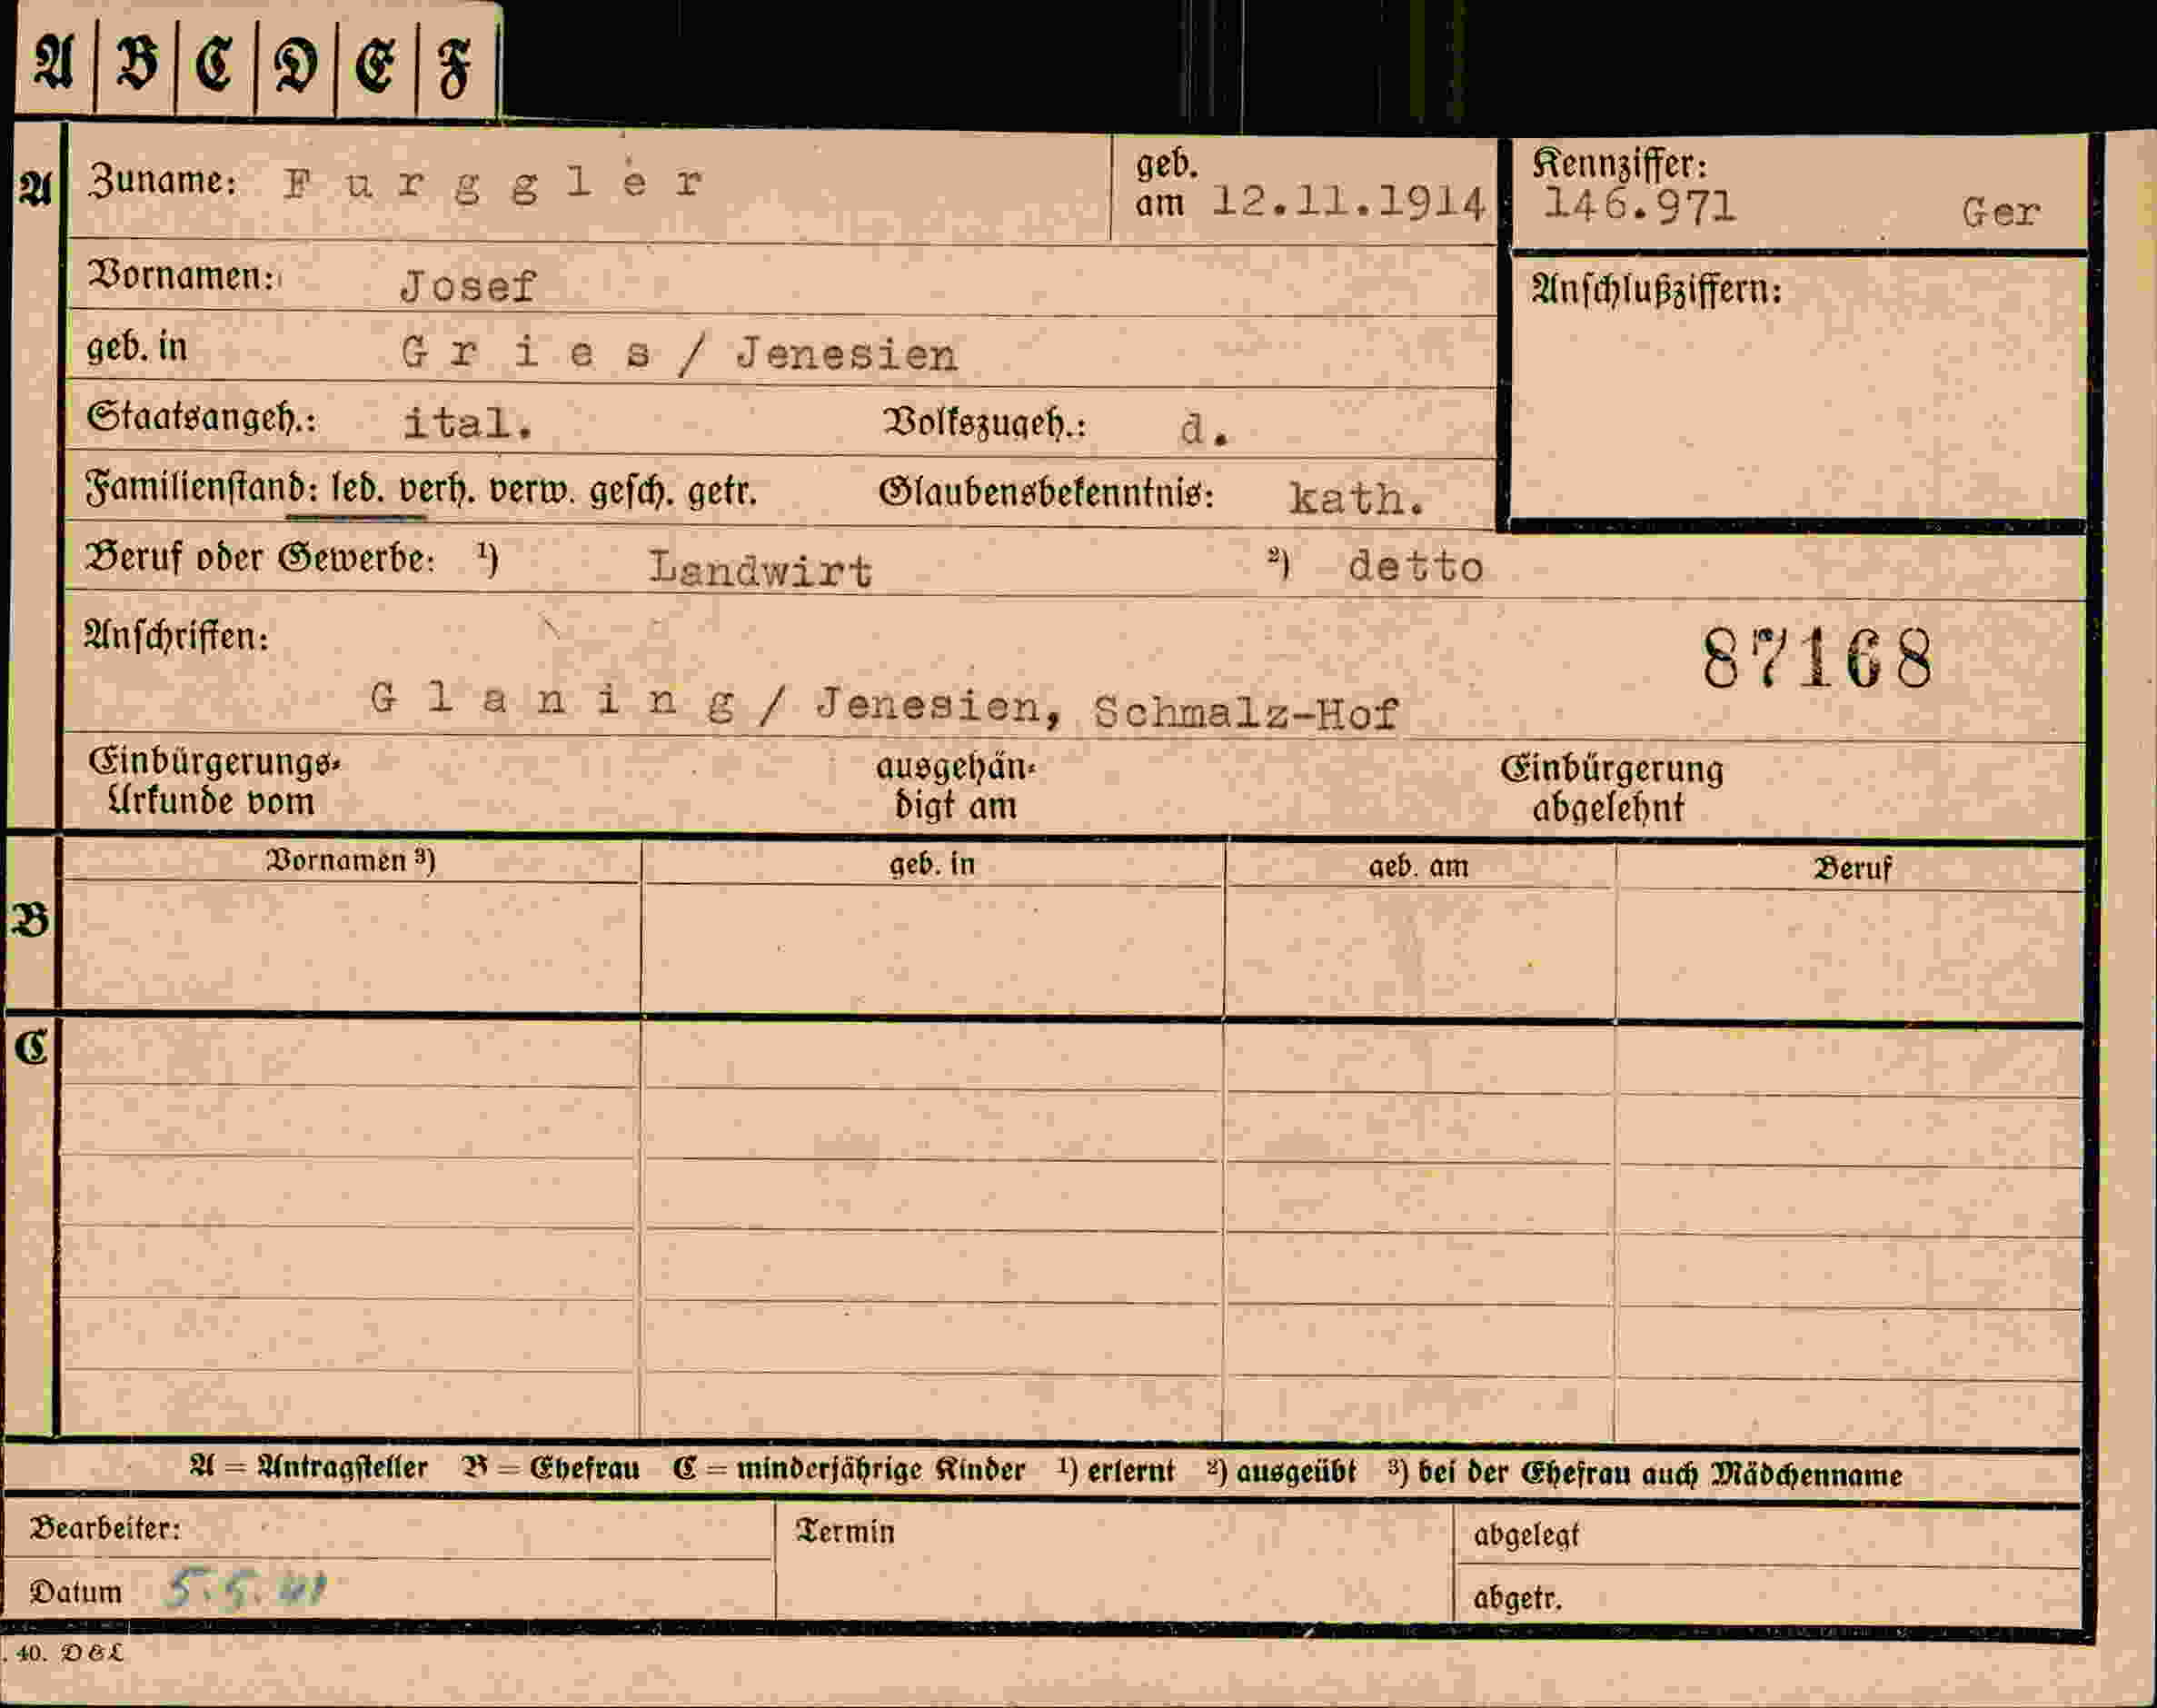 A B C D E F
A Zuname: Furggler geb. am 12.11.1914 Kennziffer: 146.971 Ger
Vornamen: Josef Anschlußziffern:
geb. in Gries/Jenesien
Staatsangeh.: ital. Volkszugeh.: d.
Familienstand: led. verh. verw. gesch. getr. Glaubensbekenntnis: kath.
Beruf oder Gewerbe: ¹) Landwirt ²) detto
Anschriften: 87168
Glaning/Jenesien, Schmalz-Hof
Einbürgerungs- ausgehän- Einbürgerung
Urkunde vom digt am abgelehnt
Vornamen ³) geb. in geb. am Beruf
B
C
A = Antragsteller B = Ehefrau C = minderjährige Kinder ¹) erlernt ²) ausgeübt ³) bei der Ehefrau auch Mädchenname
Bearbeiter: Termin abgelegt
Datum 5.5.41 abgetr.
. 40. D&L